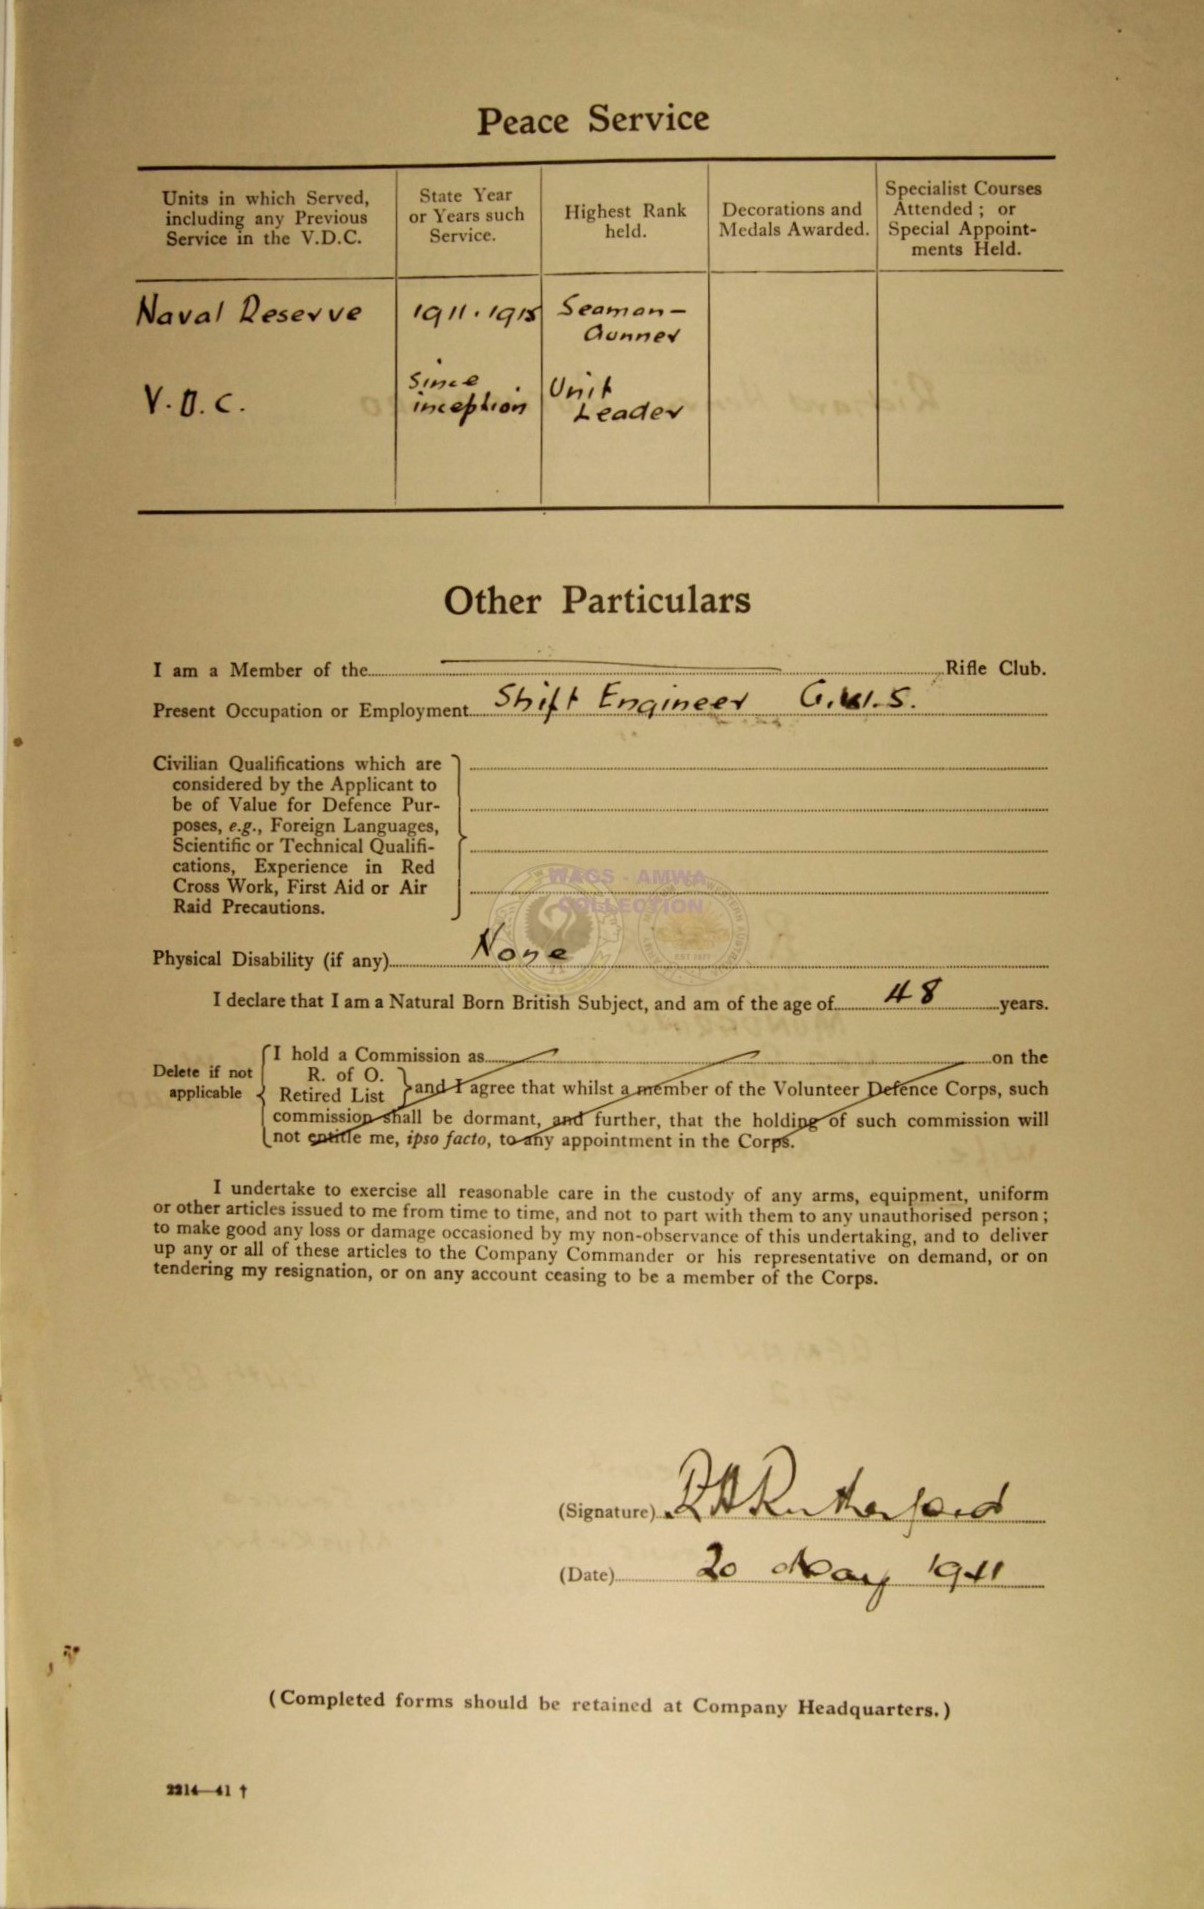 Peace Service
Units in which Served,
including any Previous
Service in the V.D.C.
State Year
or Years such
Service.
Highest Rank
held.
Decorations and
Medals Awarded.
Specialist Courses
Attended ; or
Special Appoint-
ments Held.
Naval Reserve
1911. 1915
Seaman-
Gunner
V.D.C.
Since
inception
Unit
Leader
Other Particulars
I am a Member of the Rifle Club.
Present Occupation or Employment Shift Engineer G.W.S.
Civilian Qualifications which are
considered by the Applicant to
be of Value for Defence Pur-
poses, e.g., Foreign Languages,
Scientific or Technical Qualifi-
cations, Experience in Red
Cross Work, First Aid or Air
Raid Precautions.
WAGS - AMWA
COLLECTION
Physical Disability (if any) None
I declare that I am a Natural Born British Subject, and am of the age of 48 years.
Delete if not
applicable
I hold a Commission as on the
R. of O.
Retired List
and I agree that whilst a member of the Volunteer Defence Corps, such
commission shall be dormant, and further, that the holding of such commission will
not entitle me, ipso facto, to any appointment in the Corps.
I undertake to exercise all reasonable care in the custody of any arms, equipment, uniform
or other articles issued to me from time to time, and not to part with them to any unauthorised person ;
to make good any loss or damage occasioned by my non-observance of this undertaking, and to deliver
up any or all of these articles to the Company Commander or his representative on demand, or on
tendering my resignation, or on any account ceasing to be a member of the Corps.
(Signature) RHRutherford
(Date) 20 May 1941
(Completed forms should be retained at Company Headquarters.)
2214—41 †